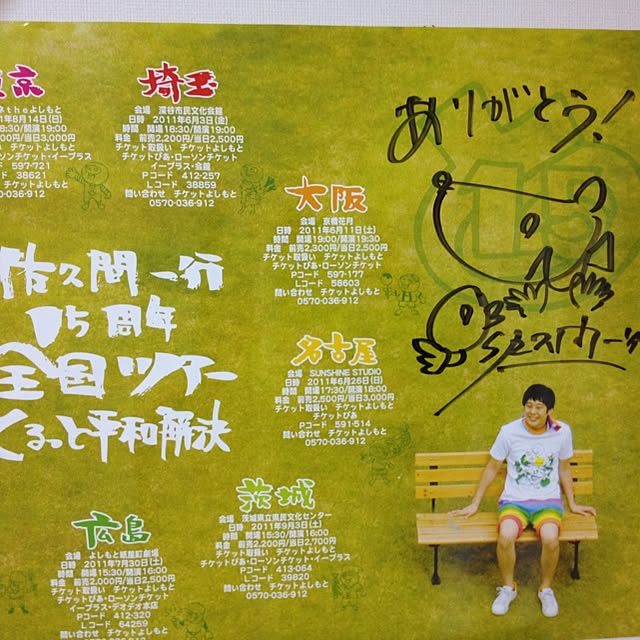 東京
ルネtheよしもと
1年8月14日(日)
18:30/開演19:00
00円/当日3,000円
い チケットよしもと
ローソンチケット・イープラス
ド 597-721
38621
チケットよしもと
0-036-912
埼玉
会場 深谷市民文化会館
日時 2011年6月3日(金)
時間 開場18:30/開演19:00
料金 前売2,200円/当日2,500円
チケット取扱い チケットよしもと
チケットぴあ・ローソンチケット
イープラス・会館
Pコード 412-257
Lコード 38859
問い合わせ チケットよしもと
0570-036-912
ありがとう!
15
大阪
会場 京橋花月
日時 2011年6月11日(土)
時間 開場19:00/開演19:30
料金 前売2,300円/当日2,500円
チケット取扱い チケットよしもと
チケットぴあ・ローソンチケット
Pコード 597-177
Lコード 58603
問い合わせ チケットよしもと
0570-036-912
佐久間一行
15周年
全国ツアー
くるっと平和解決
名古屋
会場 SUNSHINE STUDIO
日時 2011年6月26日(日)
時間 開場17:30/開演18:00
料金 前売2,500円/当日3,000円
チケット取扱い チケットよしもと
チケットぴあ
Pコード 591-514
問い合わせ チケットよしもと
0570-036-912
茨城
会場 茨城県立県民文化センター
日時 2011年9月3日(土)
時間 開場15:30/開演16:00
料金 前売2,200円/当日2,700円
チケット取扱い チケットよしもと
チケットぴあ・ローソンチケット・イープラス
Pコード 413-064
Lコード 39820
問い合わせ チケットよしもと
0570-036-912
広島
会場 よしもと紙屋町劇場
日時 2011年7月30日(土)
時間 開場15:30/開演16:00
料金 前売2,000円/当日2,500円
チケット取扱い チケットよしもと
チケットぴあ・ローソンチケット
イープラス・デオデオ本店
Pコード 412-320
Lコード 64259
問い合わせ チケットよしもと
0570-036-912